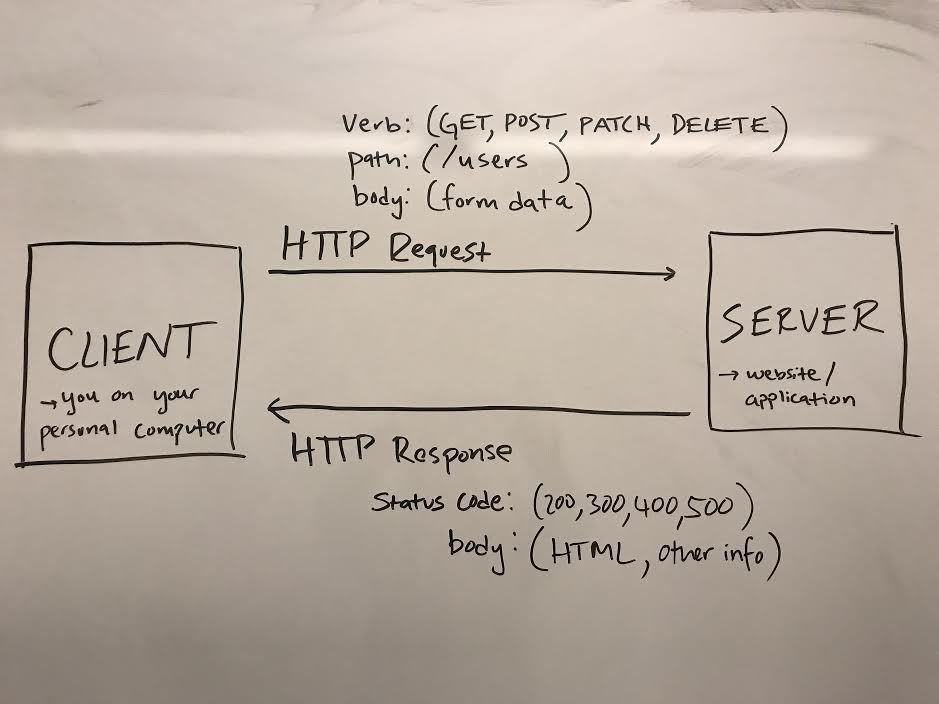 Verb: (GET, POST, PATCH, DELETE)
path: (/users )
body: (form data)
HTTP Request
CLIENT
→ you on your
personal computer
SERVER
→ website/
application
HTTP Response
Status code: (200,300,400,500)
body: (HTML, other info)